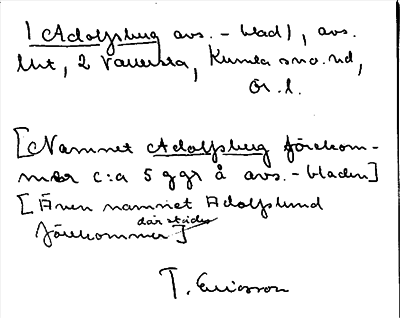 1 Adolfsberg avs.-blad), avs.
litt, 2 Vallersta, Kumla sno.rd,
Ör. l.
[Namnet Adolfsberg förekom-
mer c:a 5 ggr å avs.-bladen]
[Även namnet Adolfslund
därstädes
förekommer]
T. Ericsson